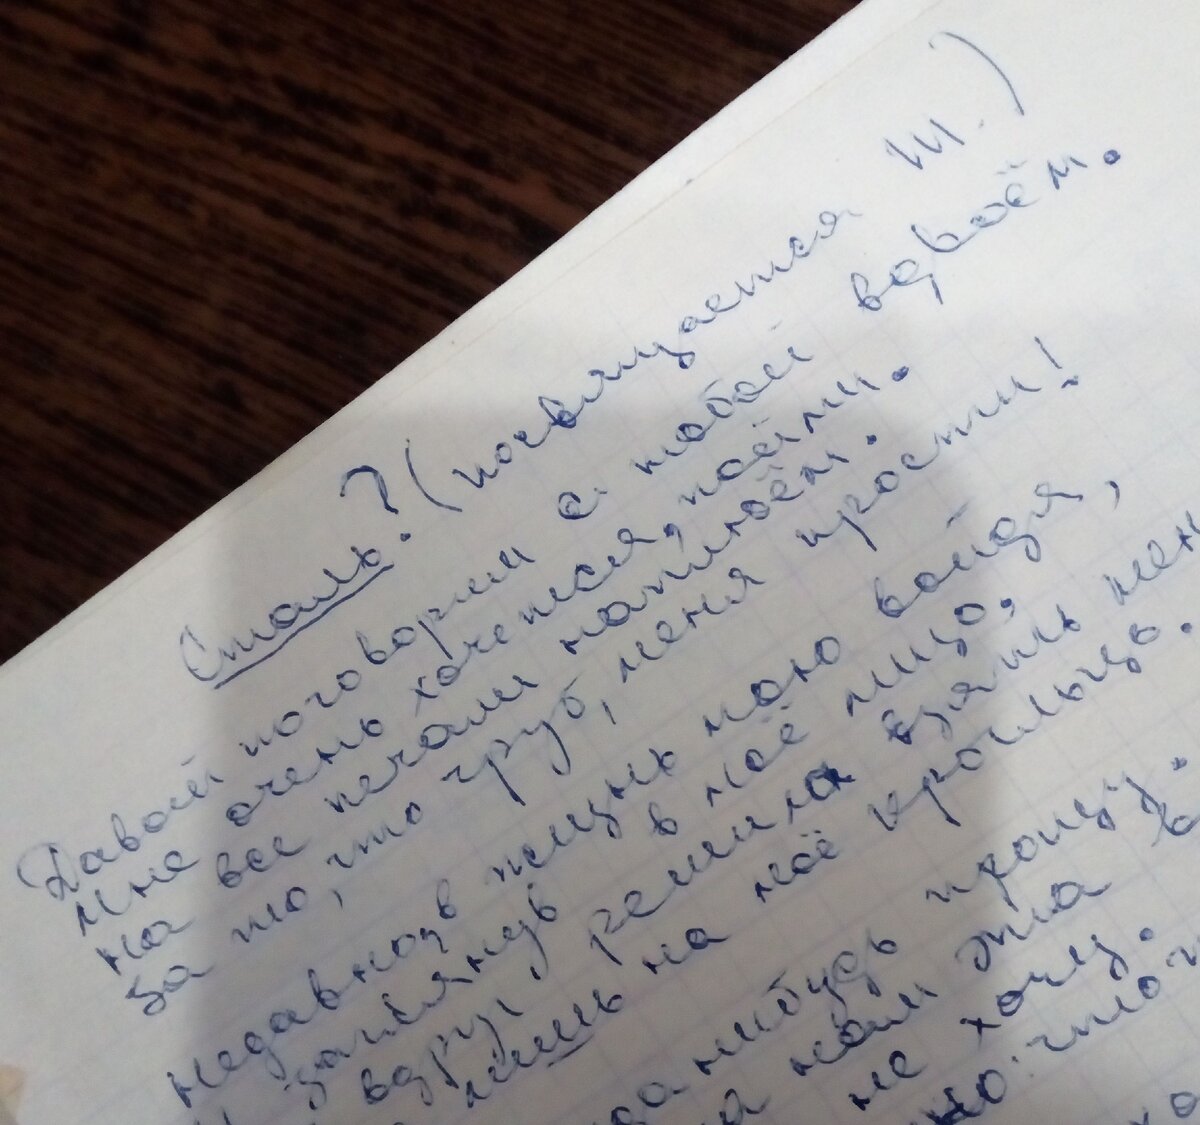 Сталь? (посвящается Ш.)
Давай поговорим с тобой вдвоём.
Мне очень хочется, пойми.
На все печали наплюём.
За то, что груб, меня прости!
Недавно в жизнь мою войдя,
И заглянув в моё лицо,
вдруг решила взять мен
лишь на моё крыльцо.
нибудь прощу.
нам эта в
не хочу.
что